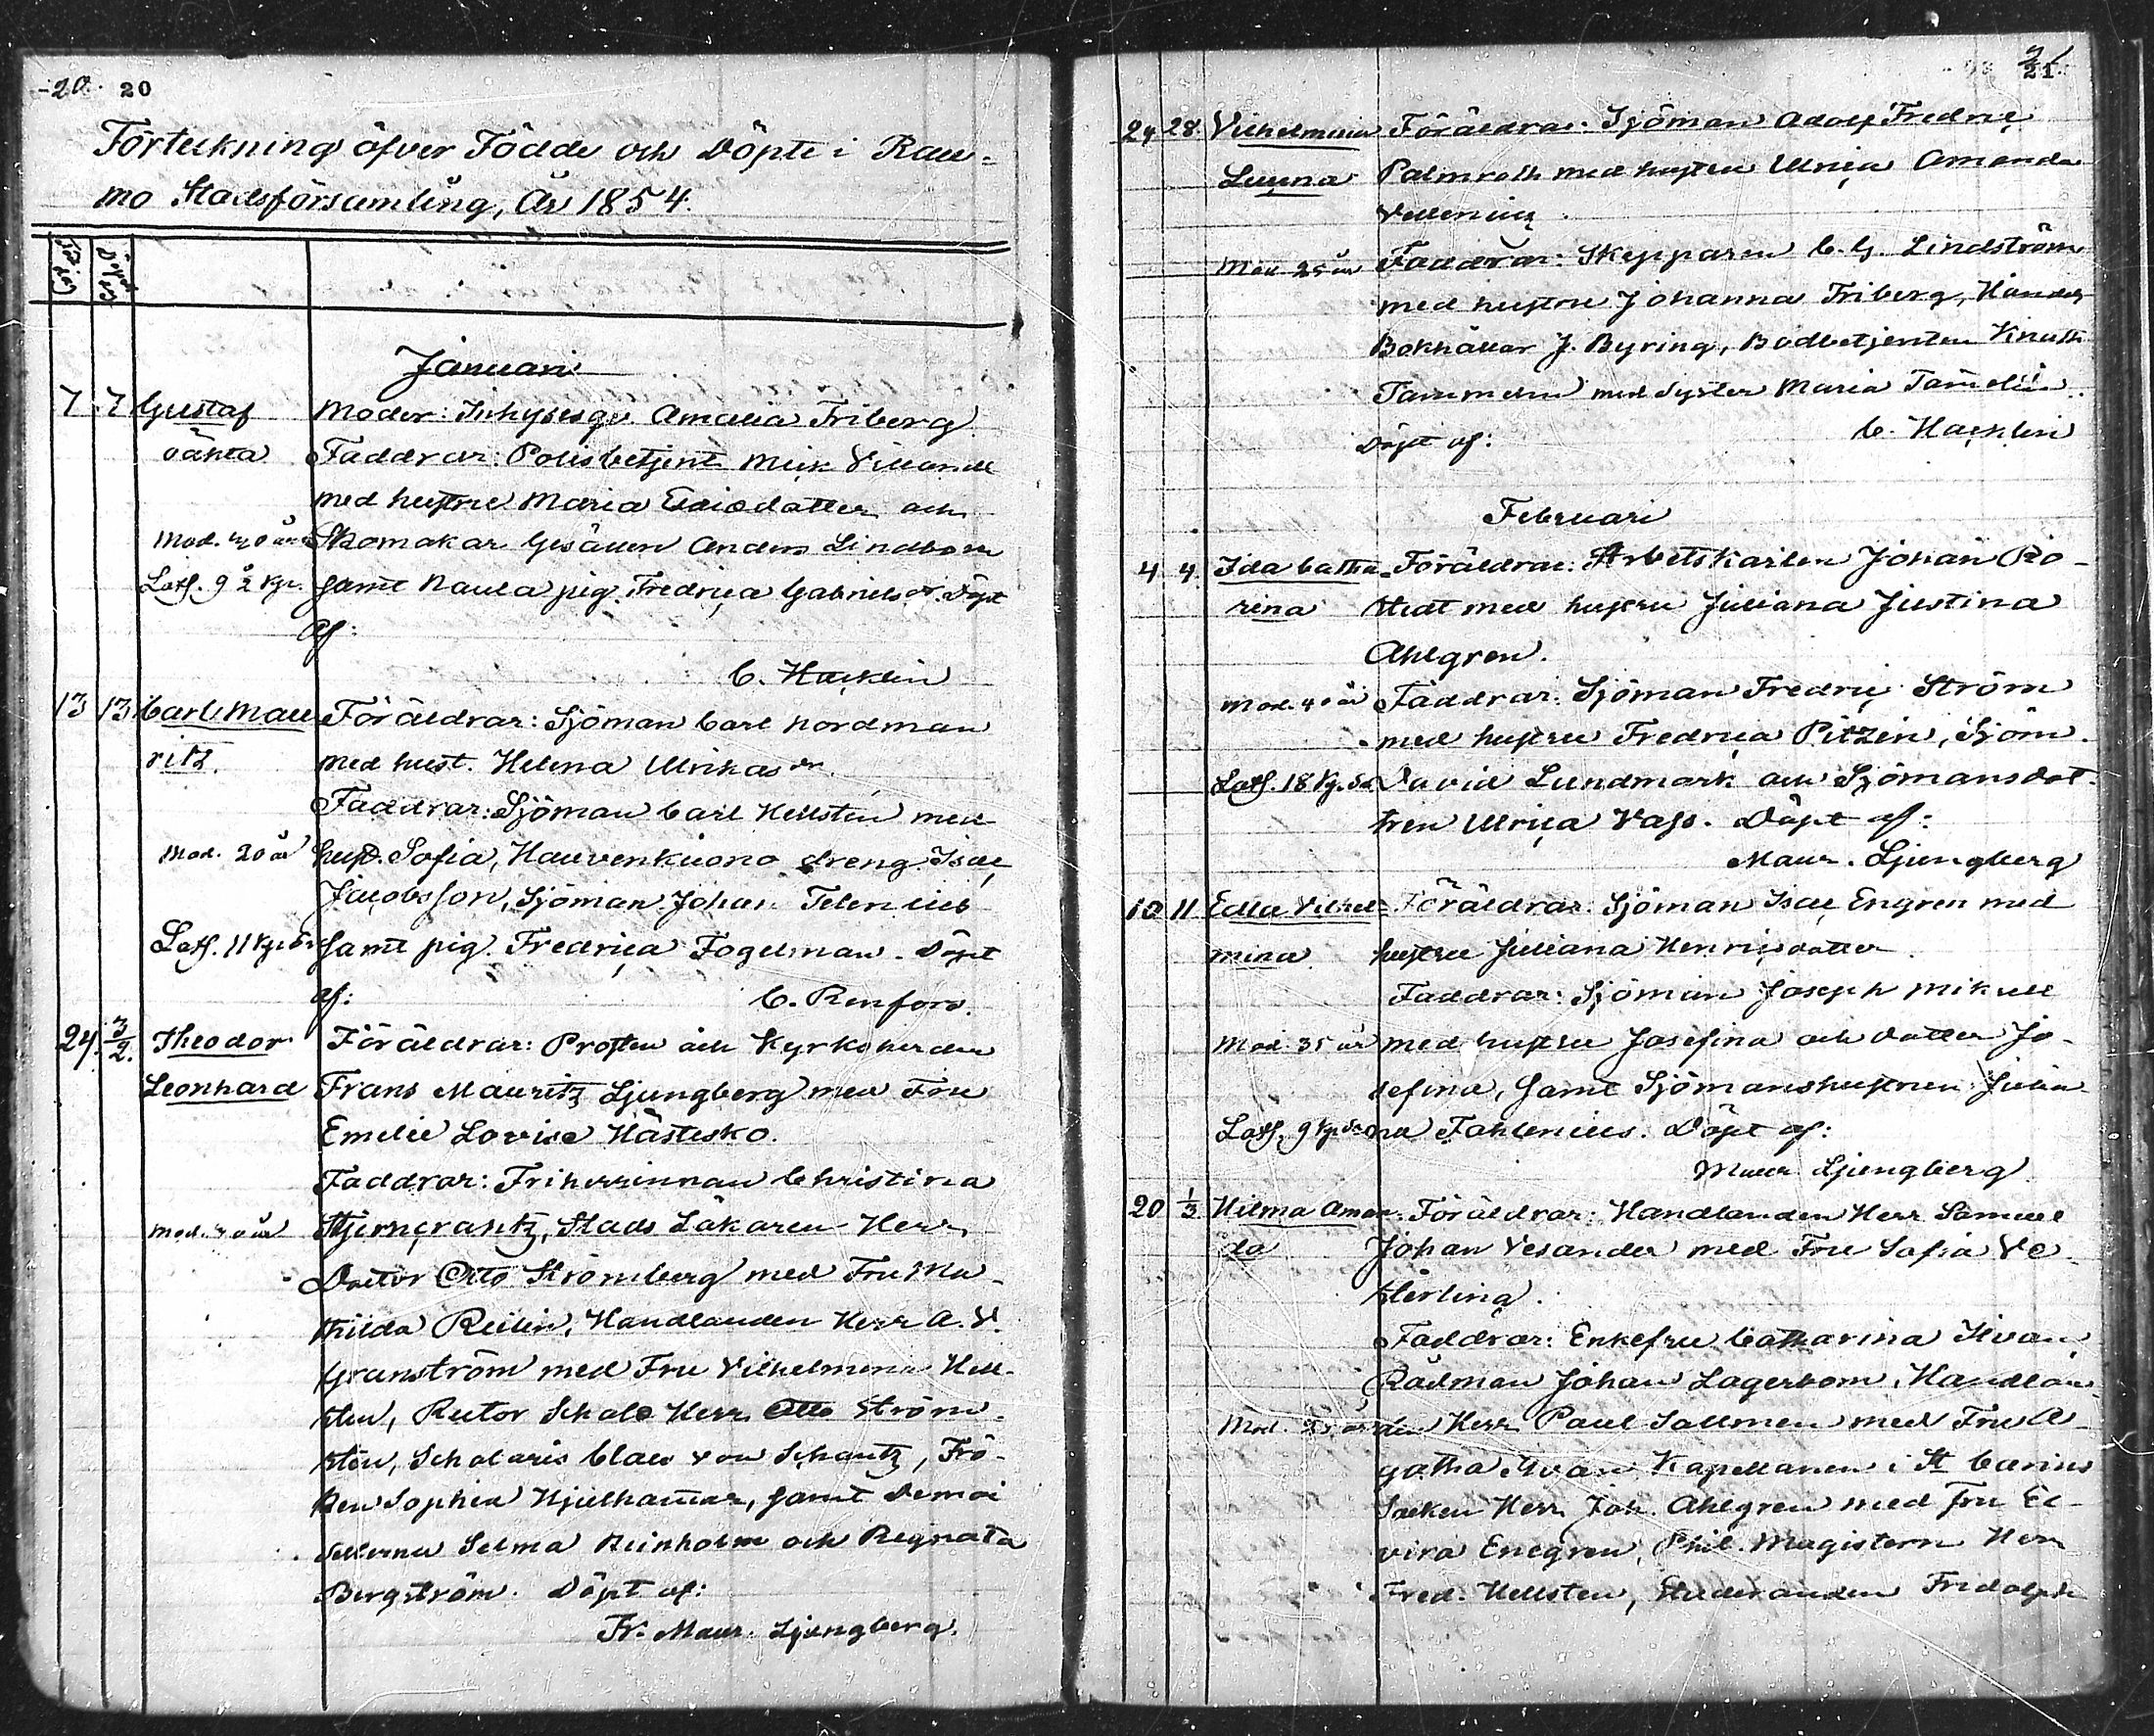 20. 20
Förteckning öfver Födde och Döpte i Rau-
mo Stadsförsamling, År 1854.
Januari
7 7 Gustaf Moder: Inhysesqv. Amalia Friberg
oäkta Faddrar: Polisbetjent Mick Villandt
med hustru Maria Ericsdotter och
Mod. 40 år Skomakar Gesällen Anders Lindbom
Lösf. 9½ kp. samt Raula pig. Fredrica Gabrielsdr. Döpt
af:
C. Hacklin
13 13 Carl Mau- Föräldrar: Sjöman Carl Nordman
ritz. med hust. Helena Ulrikasdr.
Faddrar: Sjöman Carl Hellstén med
Mod. 20 år hust. Sofia, Hauvenkuono dreng Isac
Jacobsson, Sjöman Johan Telenius
Lösf. 11 kp. samt pig. Fredrica Fogelman. Döpt
af: C. Renfors.
24 3/2. Theodor Föräldrar: Prosten och Kyrkoherden
Leonhard Frans Mauritz Ljungberg med Fru
Emelie Lovisa Hästesko.
Faddrar: Friherrinnan Christina
Mod. 40 år Stjerncrantz, Stads Läkaren Herr
Doctor Otto Strömberg med Fru Ma-
thilda Reilin, Handlanden Herr A. V.
Granström med Fru Vilhelmina Hell-
sten, Rector Schole Herr Otto Ström-
sten, Scholaris Claes von Schantz, Frö-
ken Sophia Hjelhamar, samt Demoi
sellerna Selma Reinholm och Regnata
Bergström. Döpt af:
Fr. Maur. Ljungberg.
21
21
24 28. Vilhelmina Föräldrar: Sjöman Adolf Fredric
Lucina Palmroth med hustru Ulrica Amanda
Vellenius
Mod 25 år Faddrar: Skepparen C. G. Lindström
med hustru Johanna Friberg, Handels
Bokhållar J. Byring, Bodbetjenten Knuth
Tammelin med Syster Maria Tamelin.
Döpt af: C. Hacklin
Februari
4 4. Ida Catha- Föräldrar: Arbetskarlen Johan Ro-
rina stedt med hustru Juliana Justina
Ahlgren.
Mod. 40 år Faddrar: Sjöman Fredric Ström
med hustru Fredrica Pitzin, Sjöm.
Lösf. 18 kp. David Lundmark och Sjömansdot
tren Ulrica Vass. Döpt af:
Maur. Ljungberg
10 11 Edla Vilhel- Föräldrar: Sjöman Isac Engren med
mina hustru Juliana Henricsdotter.
Faddrar: Sjöman Joseph Mikull
Mod. 35 år med hustru Josefina och dotter Jo-
sefina, samt Sjömanshustrun Julia-
Lösf. 9 kp. na Fahlenius. Döpt af:
Maur. Ljungberg
20 1/3 Hilma Aman- Föräldrar: Handlanden Herr Samuel
da Johan Vesander med Fru Sofia Ve-
sterling.
Faddrar: Enkefru Catharina Ilvan,
Rådman Johan Lagerbom, Handlan-
Mod. 25 år den Herr Paul Sallmen med Fru A-
gatha Ilvan, Kapellanen i St. Carins
Socken Herr Joh. Ahlgren med Fru El-
vira Enegren, Phil. Magistern Herr
Fred. Hellsten, Studeranden Fridolph